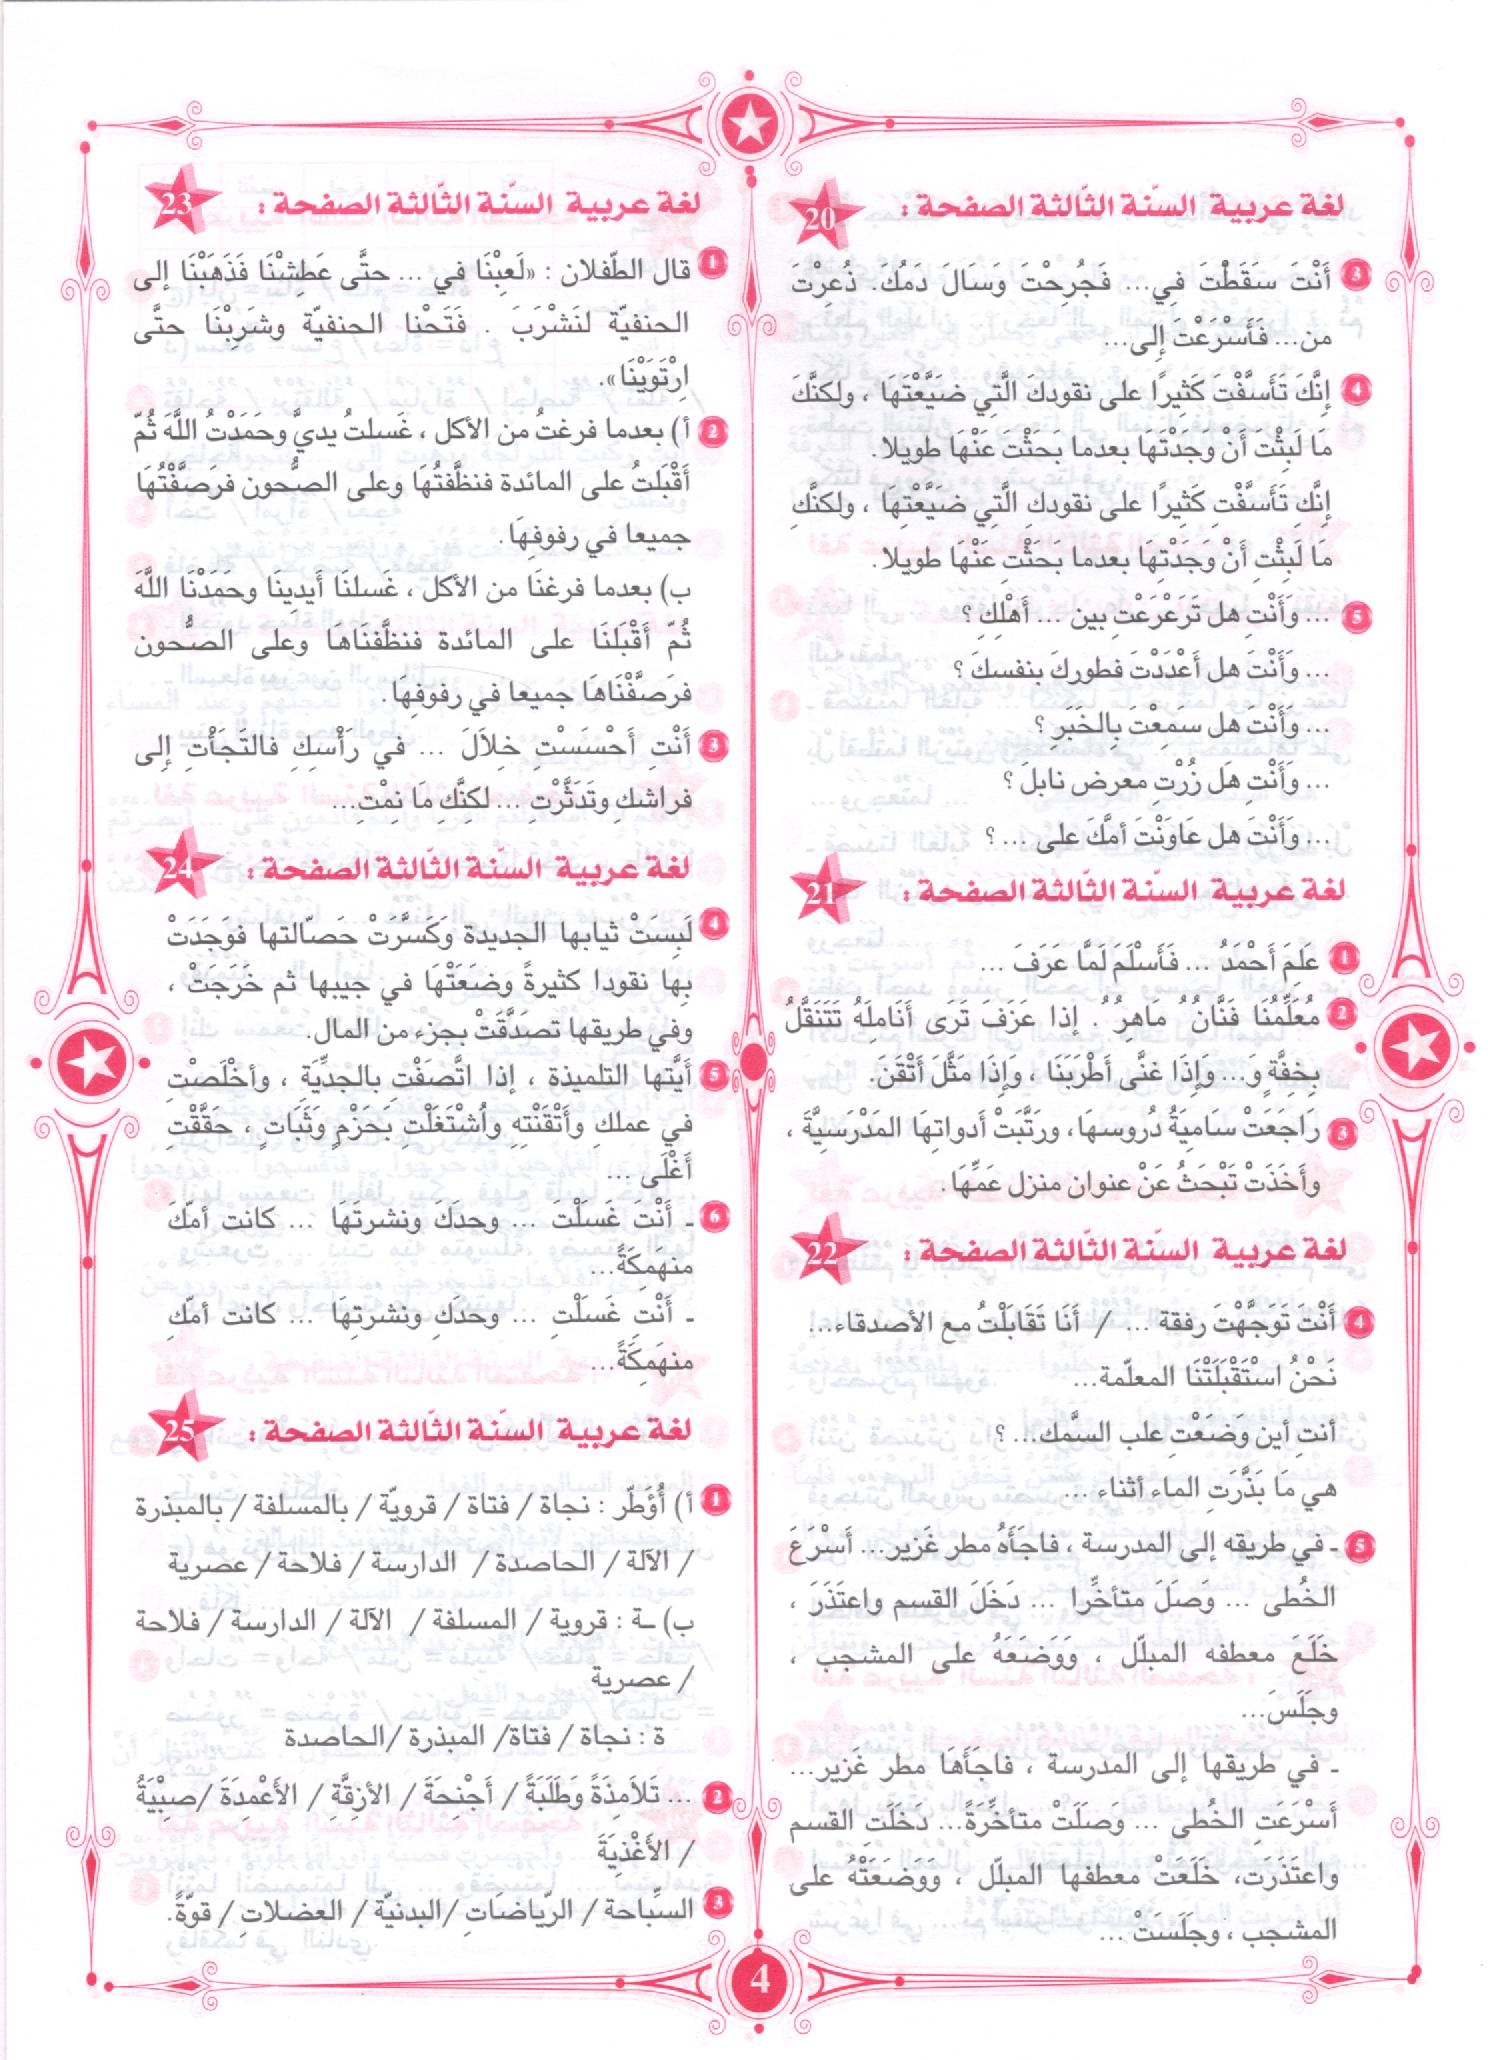 لغة عربية السنّة الثّالثة الصفحة : 20
3 أَنْتَ سَقَطْتَ فِي... فَجُرِحْتَ وَسَالَ دَمُكَ. ذُعِرْتَ
من... فَأَسْرَعْتَ إلى...
4 إِنَّكَ تَأَسَّفْتَ كَثِيرًا على نقودكَ الَّتِي ضَيَّعْتَهَا ، ولكنَّكَ
مَا لَبِثْتَ أَنْ وَجَدْتَهَا بعدما بَحَثْتَ عَنْهَا طويلا.
إنَّكِ تَأَسَّفْتِ كَثِيرًا على نقودكِ الَّتِي ضَيَّعْتِهَا ، ولكنَّكِ
مَا لَبِثْتِ أَنْ وَجَدْتِهَا بعدما بَحَثْتِ عَنْهَا طويلا.
5 ... وَأَنْتِ هل تَرَعْرَعْتِ بين ... أَهْلِكِ ؟
... وَأَنْتَ هل أَعْدَدْتَ فطوركَ بنفسكَ ؟
... وَأَنْتِ هل سَمِعْتِ بِالخَبَرِ ؟
... وَأَنْتِ هَل زُرْتِ معرض نابلَ ؟
... وَأَنْتَ هل عَاوَنْتَ أمَّكَ على ... ؟
لغة عربية السنّة الثّالثة الصفحة : 21
1 عَلِمَ أَحْمَدُ ... فَأَسْلَمَ لَمَّا عَرَفَ ...
2 مُعَلِّمُنَا فَنَّانٌ مَاهِرٌ . إذا عَزَفَ تَرَى أَنَامِلَهُ تَتَنَقَّلُ
بِخِفَّةٍ وَ... وَإِذَا غَنَّى أَطْرَبَنَا ، وَإِذَا مَثَّلَ أَتْقَنَ.
3 رَاجَعَتْ سَامِيَةُ دُروسَهَا، ورَتَّبَتْ أدواتِها المَدْرَسِيَّةَ ،
وأَخَذَتْ تَبْحَثُ عَنْ عنوان منزل عَمِّهَا.
لغة عربية السنّة الثّالثة الصفحة : 22
4 أَنْتَ تَوَجَّهْتَ رفقة ... / أَنَا تَقَابَلْتُ مع الأصدقاء...
نَحْنُ اسْتَقْبَلَتْنَا المعلّمة...
أنتِ أين وَضَعْتِ علب السَّمك... ؟
هي مَا بَذَّرَتِ الماء أثناء ...
5 ـ في طريقه إلى المدرسة ، فاجأَهُ مطر غَزير... أَسْرَعَ
الخُطى ... وَصَلَ متأخِّرا ... دَخَلَ القسم واعتَذَرَ ،
خَلَعَ معطفه المبلّل ، وَوَضَعَهُ على المشجب ،
وجَلَسَ...
ـ في طريقها إلى المدرسة ، فاجَأَهَا مطر غَزير...
أَسْرَعَتِ الخُطى ... وَصَلَتْ متأخِّرَةً... دَخَلَتِ القسم
واعتَذَرَت، خَلَعَتْ معطفها المبلّل ، وَوَضَعَتْهُ على
المشجب ، وجَلَسَتْ ...
لغة عربية السنّة الثّالثة الصفحة : 23
1 قال الطّفلان : «لَعِبْنَا في ... حتَّى عَطِشْنَا فَذَهَبْنَا إلى
الحنفيّة لنَشْرَبَ . فَتَحْنا الحنفيّة وشَرِبْنَا حتَّى
اِرْتَوَيْنَا».
2 أ) بعدما فرغتُ من الأكل ، غَسلتُ يديَّ وحَمَدْتُ اللَّهَ ثُمّ
أَقْبَلتُ على المائدة فنظَّفتُهَا وعلى الصّحون فرَصَّفْتُهَا
جميعا في رفوفِهَا.
ب) بعدما فرغنَا من الأكل ، غَسلنَا أَيدِينَا وحَمَدْنَا اللَّهَ
ثُمّ أَقْبَلنَا على المائدة فنظَّفنَاهَا وعلى الصّحون
فرَصَّفْنَاهَا جميعا في رفوفِهَا.
3 أَنْتِ أَحْسَسْتِ خِلاَلَ ... في رَأْسِكِ فالتَجَأْتِ إلى
فراشكِ وتَدَثَّرْتِ ... لكنَّكِ مَا نِمْتِ...
لغة عربية السنّة الثّالثة الصفحة : 24
4 لَبِسَتْ ثيابها الجديدة وَكَسَّرَتْ حَصّالتها فوَجَدَتْ
بِها نقودا كثيرةً وضَعَتْهَا في جيبها ثم خَرَجَتْ ،
وفي طريقها تصَدَّقَتْ بجزء من المال.
5 أيّتها التلميذة ، إذا اتَّصَفْتِ بالجدِّيَةِ ، وأخْلَصْتِ
في عملكِ وأَتْقَنْتِهِ واُشْتَغَلْتِ بَحَزْمٍ وَثَبَاتٍ ، حَقَّقْتِ
أَغْلَى ...
6 ـ أَنْتَ غَسَلْتَ ... وحدَكَ ونشرتَهَا ... كانت أمّكَ
منهَمِكَةً...
ـ أَنْتِ غَسلْتِ ... وحدَكِ ونشرتِهَا ... كانت أمّكِ
منهَمِكَةً...
لغة عربية السنّة الثّالثة الصفحة : 25
1 أ) أُؤَطّر : نجاة / فتاة / قرويّة / بالمسلفة / بالمبذرة
/ الآلة / الحاصدة / الدارسة / فلاحة / عصرية
ب) ـة : قروية / المسلفة / الآلة / الدارسة / فلاحة
/ عصرية
ة : نجاة / فتاة/ المبذرة /الحاصدة
2 ... تَلاَمِذَةً وَطَلَبَةً / أَجْنِحَةَ / الأزِقَّةِ / الأَعْمِدَةَ /صِبْيَةُ
/ الأَغْذِيَةَ
3 السِّباحة / الرّياضَاتِ /البدنيّة / العضلاتِ / قوّةً.
4